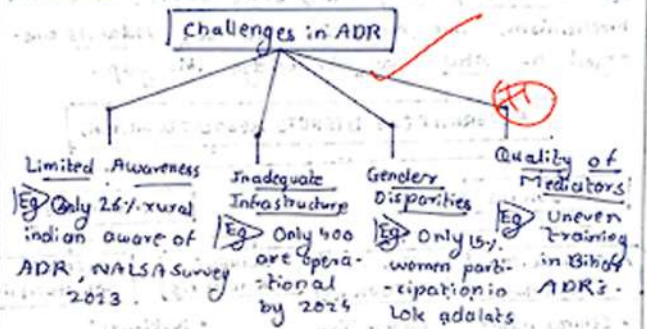 Challenges in ADR
Limited Awareness
Eg Only 26% rural
indian aware of
ADR, NALSA Survey
2023.
Inadequate
Infrastructure
Eg Only 400
are opera-
-tional
by 2024
Gender
Disparities
Eg Only 15%
women parti-
-cipation in
Lok adalats
Quality of
Mediators
Eg Uneven
training
in Bihar
ADRs.